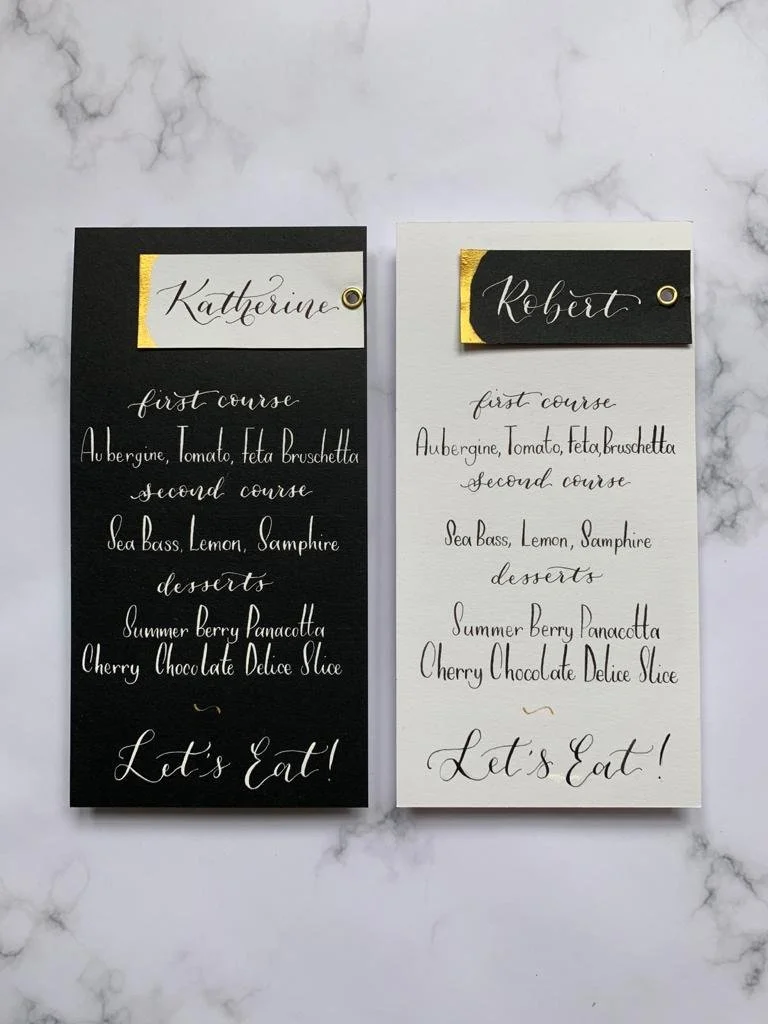 Katherine
first course
Aubergine, Tomato, Feta Bruschetta
second course
Sea Bass, Lemon, Samphire
desserts
Summer Berry Panacotta
Cherry Chocolate Delice Slice
Let's Eat!
Robert
first course
Aubergine, Tomato, Feta, Bruschetta
second course
Sea Bass, Lemon, Samphire
desserts
Summer Berry Panacotta
Cherry Chocolate Delice Slice
Let's Eat!